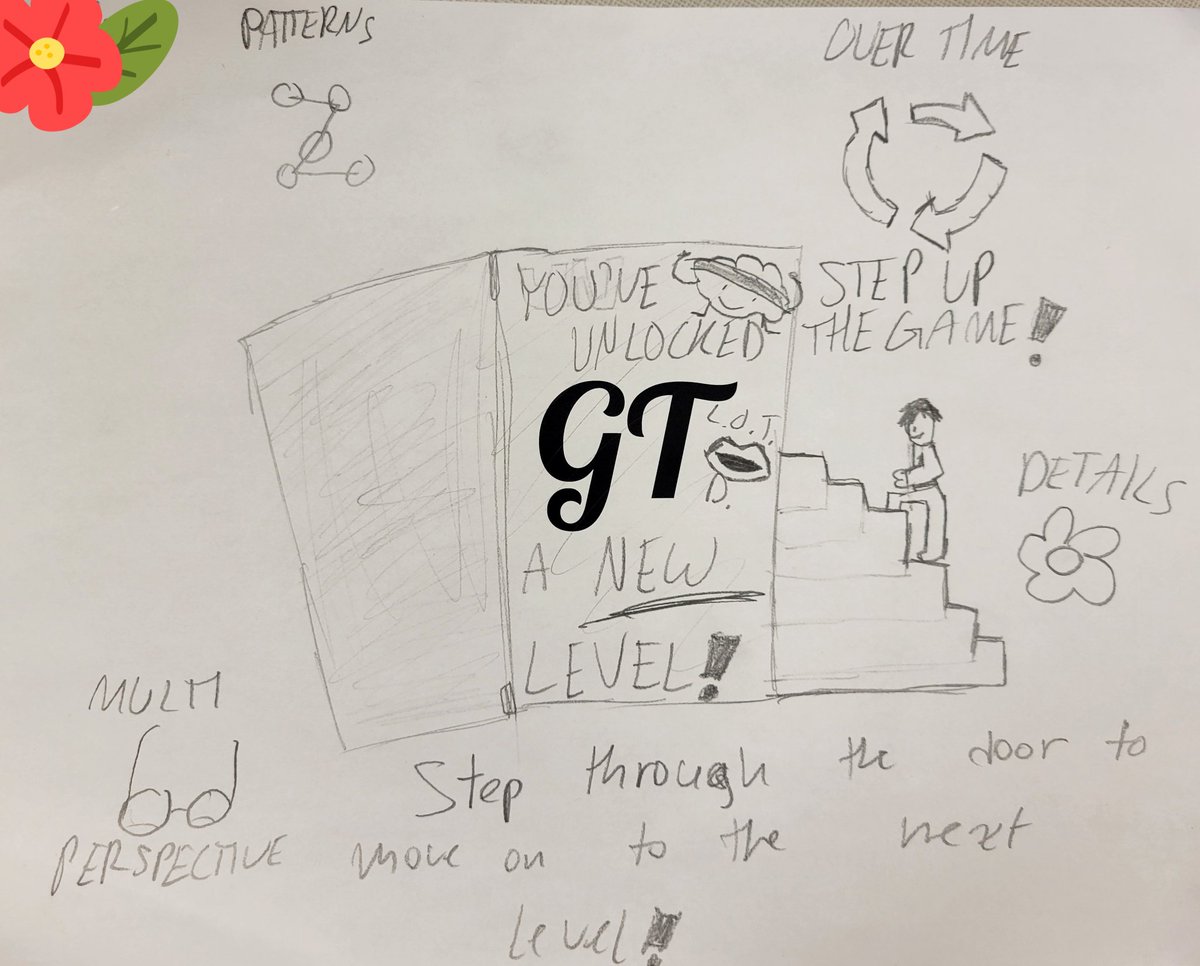 PATTERNS
OVER TIME
YOU'VE
UNLOCKED
STEP UP
THE GAME!
GT
L.O.T.
D.
A NEW
LEVEL!
DETAILS
MULTI
PERSPECTIVE
Step through the door to
move on to the next
level!